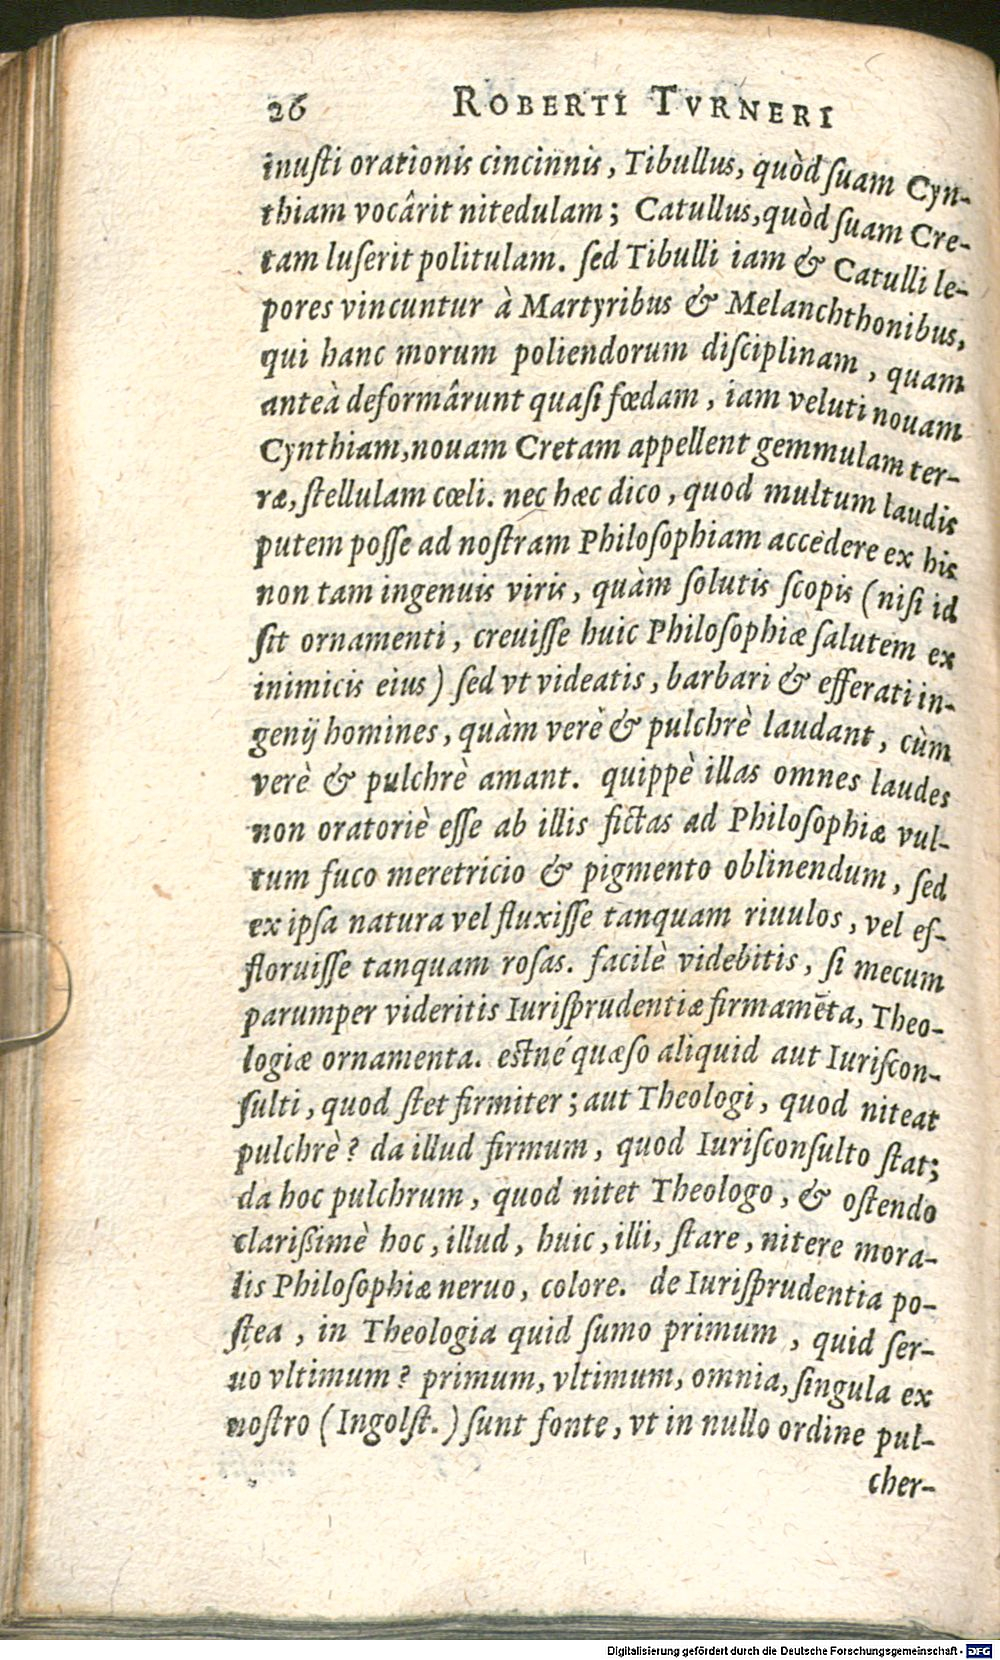 26 ROBERTI TVRNERI
inusti orationis cincinnis, Tibullus, quòd suam Cyn-
thiam vocârit nitedulam; Catullus, quòd suam Cre-
tam luserit politulam. sed Tibulli iam & Catulli le-
pores vincuntur à Martyribus & Melanchthonibus,
qui hanc morum poliendorum disciplinam, quam
anteà deformârunt quasi fœdam, iam veluti nouam
Cynthiam, nouam Cretam appellent gemmulam ter-
ræ, stellulam cœli. nec hæc dico, quod multum laudis
putem posse ad nostram Philosophiam accedere ex his
non tam ingenuis viris, quàm solutis scopis (nisi id
sit ornamenti, creuisse huic Philosophiæ salutem ex
inimicis eius) sed vt videatis, barbari & efferati in-
genij homines, quàm verè & pulchrè laudant, cùm
verè & pulchrè amant. quippè illas omnes laudes
non oratoriè esse ab illis fictas ad Philosophiæ vul-
tum fuco meretricio & pigmento oblinendum, sed
ex ipsa natura vel fluxisse tanquam riuulos, vel ef-
floruisse tanquam rosas. facilè videbitis, si mecum
parumper videritis Iurisprudentiæ firmamēta, Theo-
logiæ ornamenta. estné quæso aliquid aut Iuriscon-
sulti, quod stet firmiter; aut Theologi, quod niteat
pulchrè? da illud firmum, quod Iurisconsulto stat;
da hoc pulchrum, quod nitet Theologo, & ostendo
clarißimè hoc, illud, huic, illi, stare, nitere mora-
lis Philosophiæ neruo, colore. de Iurisprudentia po-
stea, in Theologia quid sumo primum, quid ser-
uo vltimum? primum, vltimum, omnia, singula ex
nostro (Ingolst.) sunt fonte, vt in nullo ordine pul-
cher-
Digitalisierung gefördert durch die Deutsche Forschungsgemeinschaft - DFG